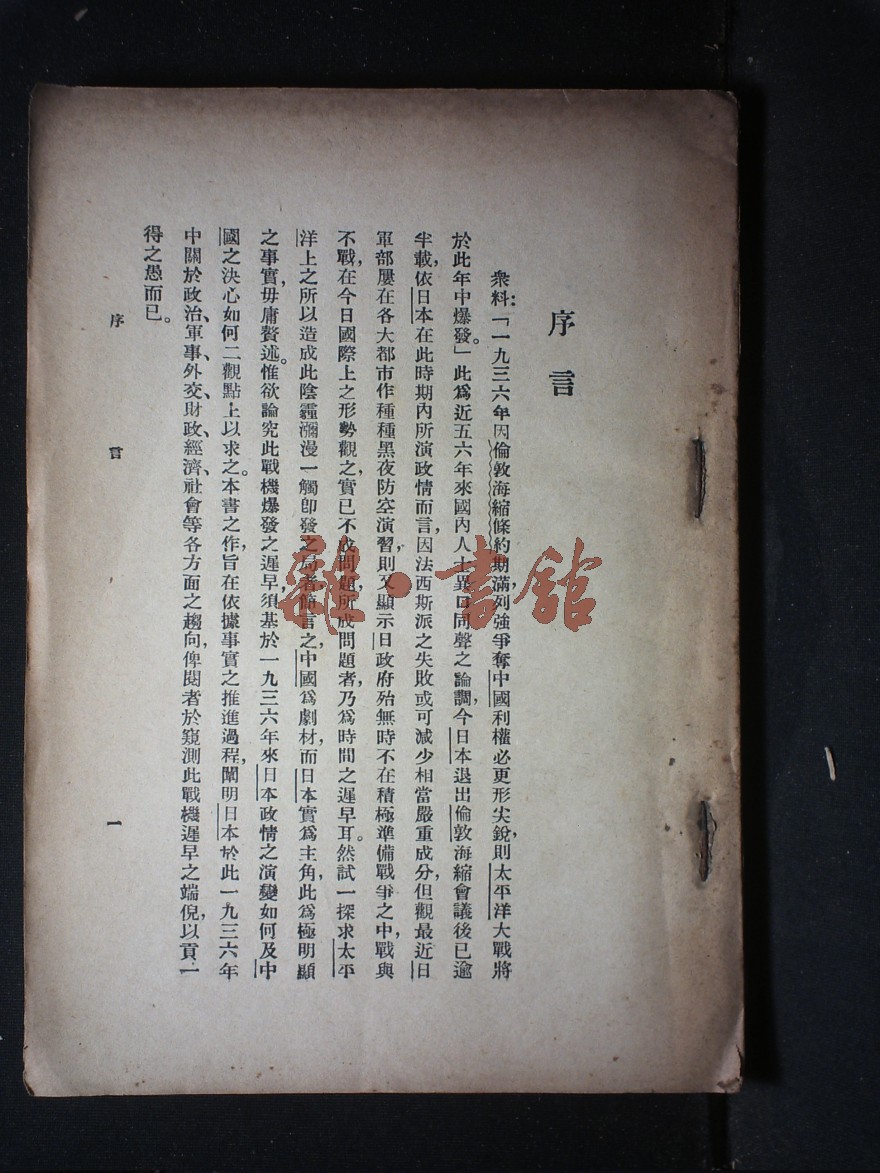 序言
衆料：「一九三六年因倫敦海縮條約期滿，列強爭奪中國利權必更形尖銳，則太平洋大戰將
於此年中爆發。」此爲近五六年來國內人士異口同聲之論調，今日本退出倫敦海縮會議後已逾
半載，依日本在此時期內所演政情而言，因法西斯派之失敗或可減少相當嚴重成分，但觀最近日
軍部屢在各大都市作種種黑夜防空演習，則又顯示日政府殆無時不在積極準備戰爭之中，戰與
不戰，在今日國際上之形勢觀之，實已不成問題，所成問題者，乃爲時間之遲早耳。然試一探求太平
洋上之所以造成此陰霾瀰漫一觸卽發之局者，簡言之，中國爲劇材，而日本實爲主角，此爲極明顯
之事實，毋庸贅述。惟欲論究此戰機爆發之遲早，須基於一九三六年來日本政情之演變如何及中
國之決心如何二觀點上以求之。本書之作，旨在依據事實之推進過程，闡明日本於此一九三六年
中關於政治、軍事、外交、財政、經濟、社會等各方面之趨向，俾閱者於窺測此戰機遲早之端倪，以貢一
得之愚而已。
序言
一
雜·書館